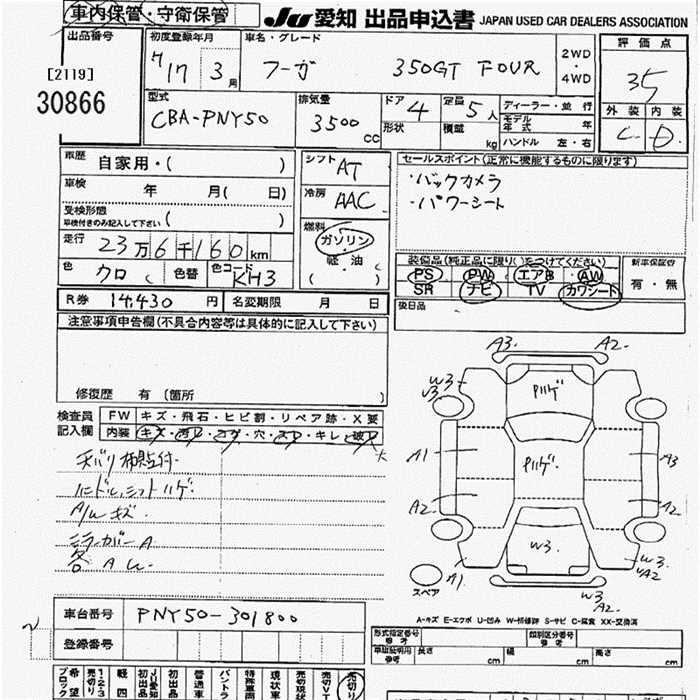 車内保管・守衛保管
JU 愛知 出品申込書 JAPAN USED CAR DEALERS ASSOCIATION
出品番号
[2119]
30866
初度登録年月
H17 3月
車名・グレード
フーガ 350GT FOUR
2WD・4WD
評価点
3.5
外装 内装
C D
型式
CBA-PNY50
排気量
3500 cc
ドア 4
形状
定員 5人
積載 kg
ディーラー・並行
モデル年式 年
ハンドル 左・右
車歴 自家用・( )
車検 年 月( 日)
受検形態
車検付きのみ記入して下さい ( )
走行 23万6千160km
色 クロ ( 色替 色コード KH3
シフト AT
冷房 AAC
燃料
ガソリン
軽・油
( )
セールスポイント(正常に機能するものに限ります)
・バックカメラ
・パワーシート
装備品(純正品に限り○をつけてください)
PS PW エアB AW
SR ナビ TV カワシート
新車保証書
有・無
後日品
R券 14,430円 名変期限 月 日
注意事項申告欄(不具合内容等は具体的に記入して下さい)
修復歴 有 (箇所 )
検査員記入欄
FW キズ・飛石・ヒビ割・リペア跡・X要
内装 キズ・汚レ・コゲ・穴・スレ・キレ・破レ 大
天バリ
シフトハゲ
A/Wキズ
ミラーカバーA
A3 A2
W3
ハゲ
A1
ハゲ
A3
A2
A2
W3
A1
W3
A2
スペア
W3
A2
A-キズ E-エクボ U-凹み W-補修跡 S-サビ C-腐食 XX-交換済
車台番号 PNY50-301800
登録番号
形式指定番号 参考
類別区分番号 参考
車庫証明用 参考
長さ cm
幅 cm
高さ cm
希望ブロック
売切り
1・2・3
軽四
初出品
JU愛知
初出品
普通車
バントラ
特殊車両
現状車
売切現状
売切VT
売切り